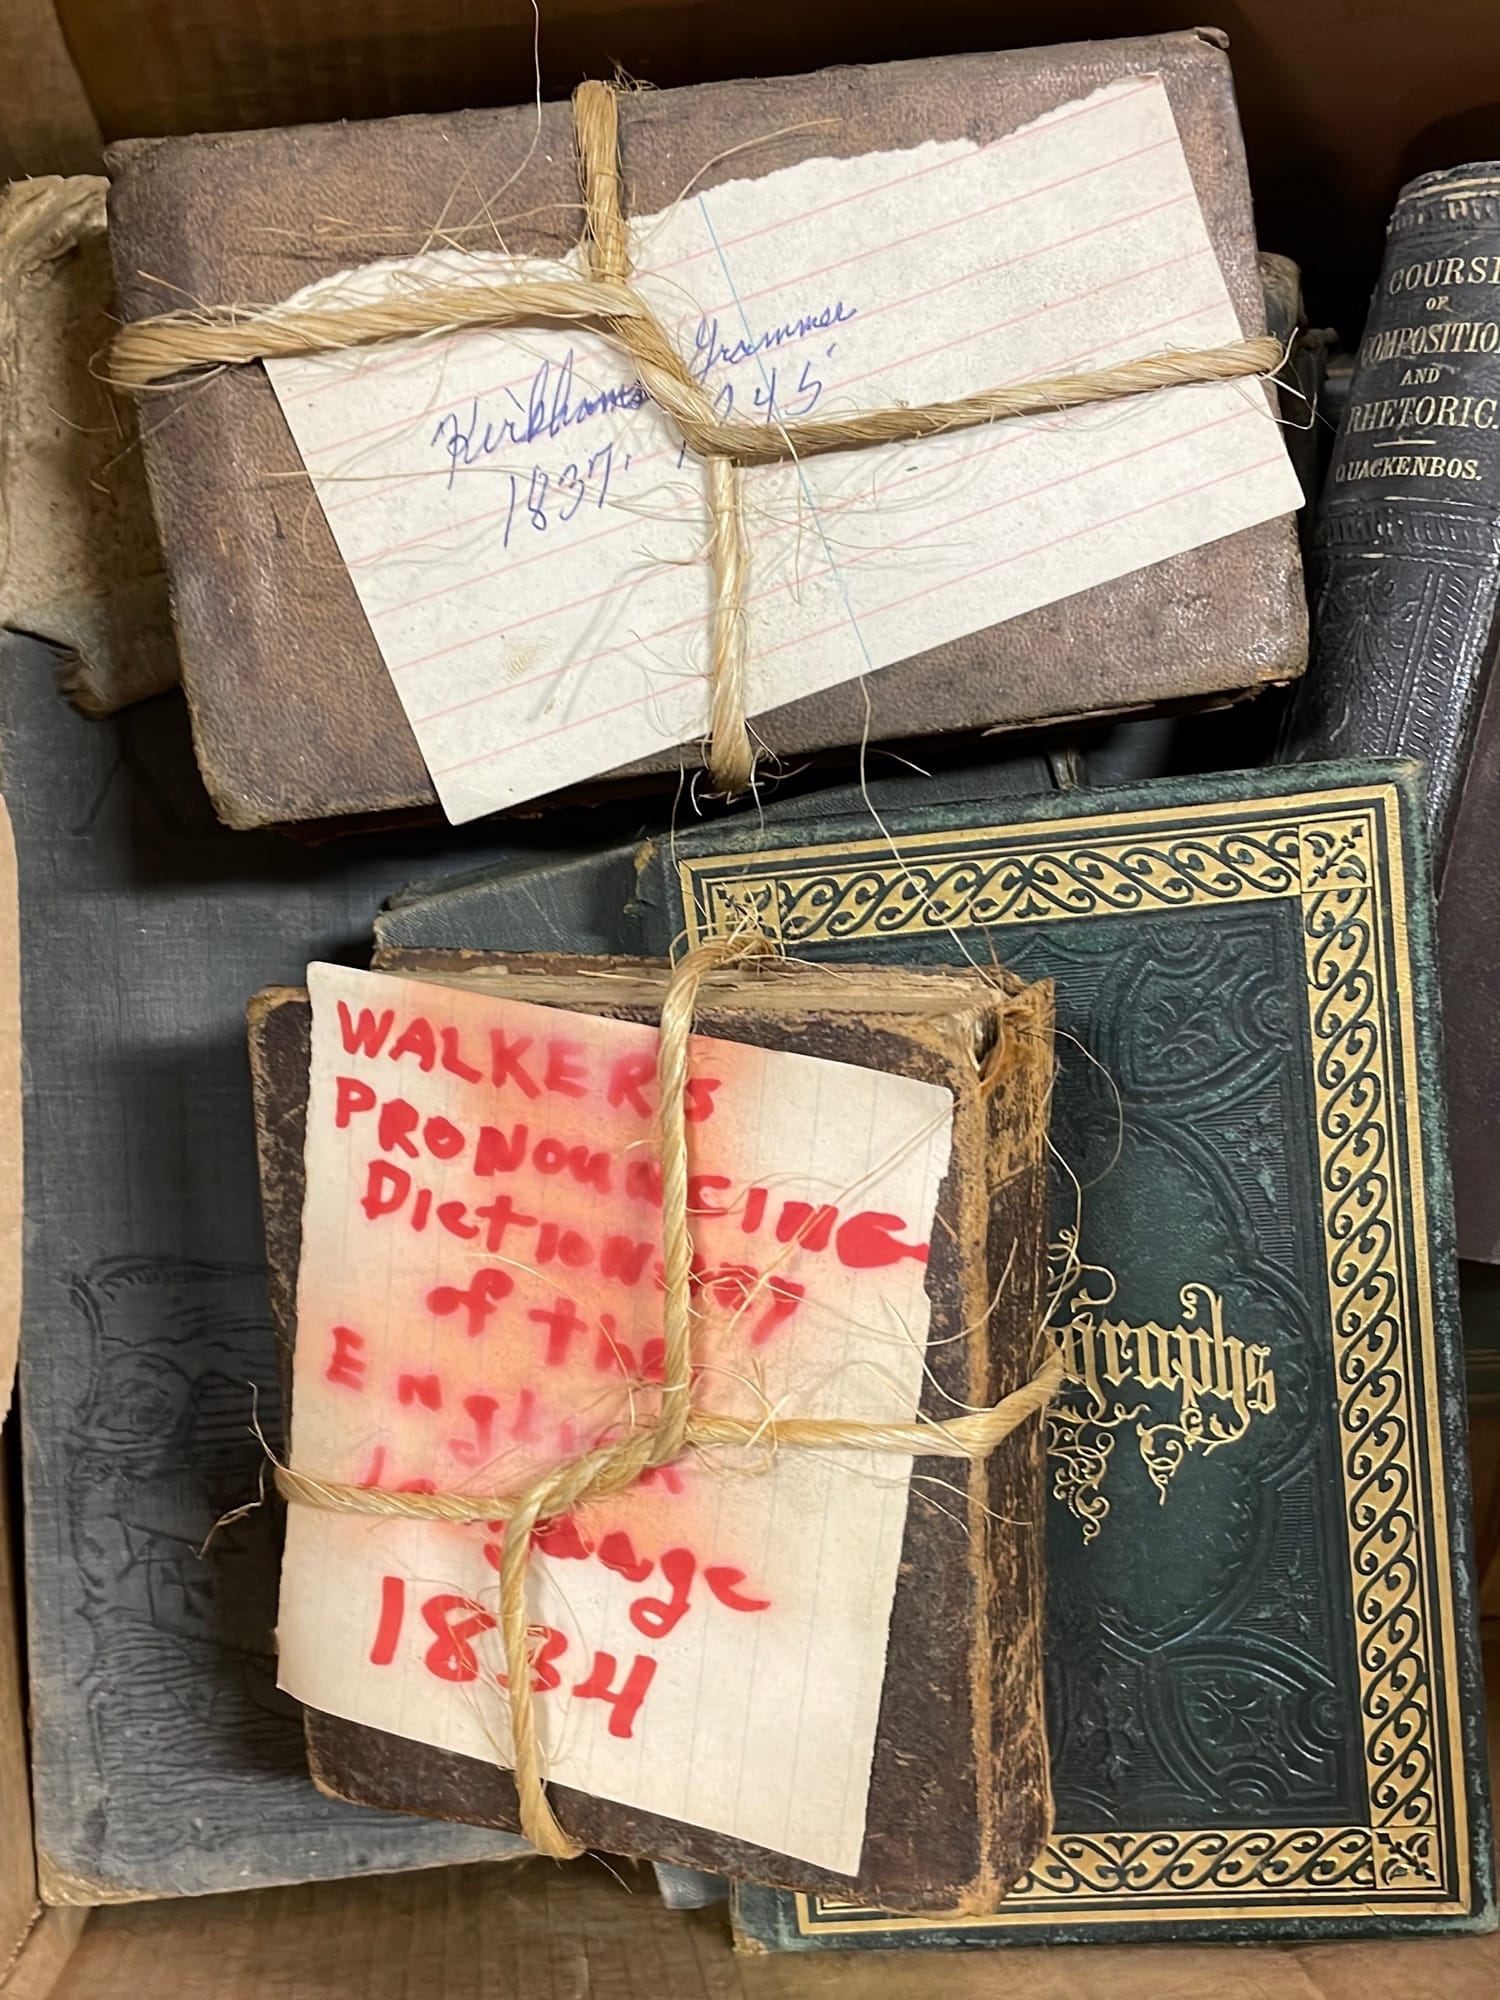 Kirkhams Grammer
1837. 1845
COURSE
OF
COMPOSITION
AND
RHETORIC.
QUACKENBOS.
WALKERS
PRONOUNCING
Dictionary
of the
English
language
1834